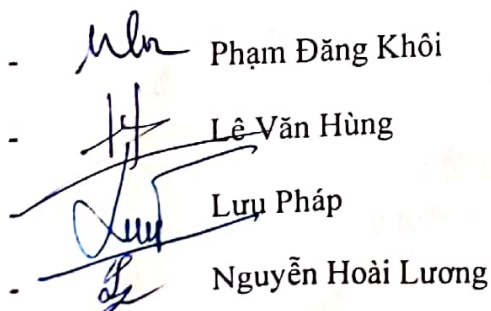 - Phạm Đăng Khôi
- Lê Văn Hùng
- Lưu Pháp
- Nguyễn Hoài Lương